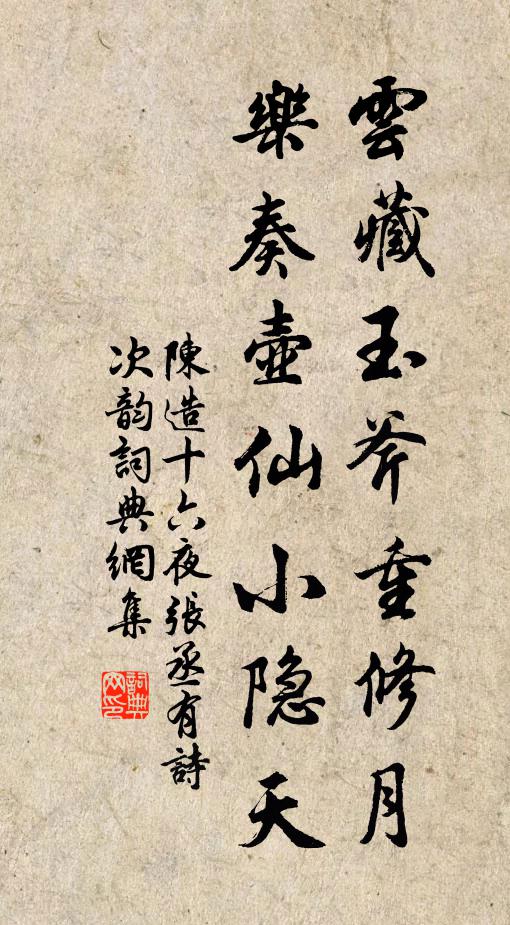 雲藏玉斧重修月
樂奏壺仙小隐天
陳造十六夜張丞有詩
次韵詞典網集
詞典網印